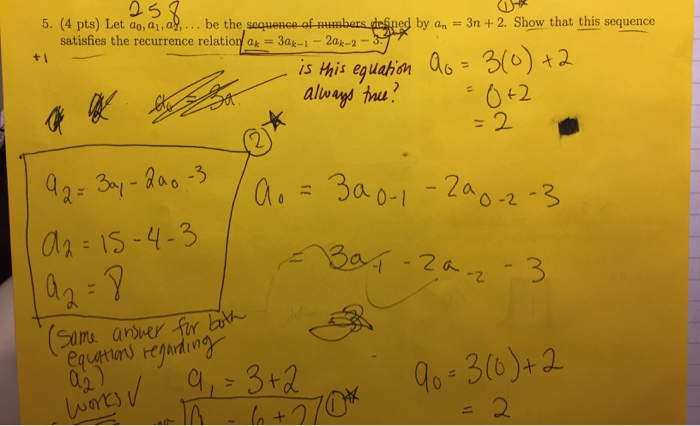 2 5 8
5. (4 pts) Let a₀, a₁, a₂, ... be the sequence of numbers defined by aₙ = 3n + 2. Show that this sequence
satisfies the recurrence relation aₖ = 3aₖ₋₁ − 2aₖ₋₂ − 3.
+1
is this equation
always true?
a₀ = 3(0) + 2
= 0+2
= 2
②*
a₂ = 3a₁ - 2a₀ - 3
a₂ = 15 - 4 - 3
a₂ = 8
(Same answer for both
equations regarding
a₂)
works ✓
a₀ = 3a₀₋₁ - 2a₀₋₂ - 3
= 3a₋₁ - 2a₋₂ - 3
a₁ = 3+2
6+2
①*
a₀ = 3(0)+2
= 2